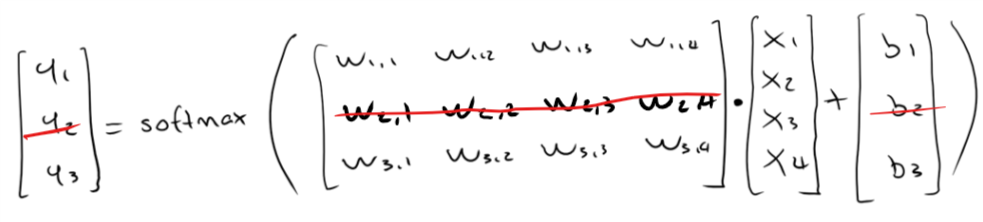 [y1 y2 y3] = softmax ( [w1,1 w1,2 w1,3 w1,4
w2,1 w2,2 w2,3 w2,4
w3,1 w3,2 w3,3 w3,4] · [x1 x2 x3 x4] + [b1 b2 b3] )